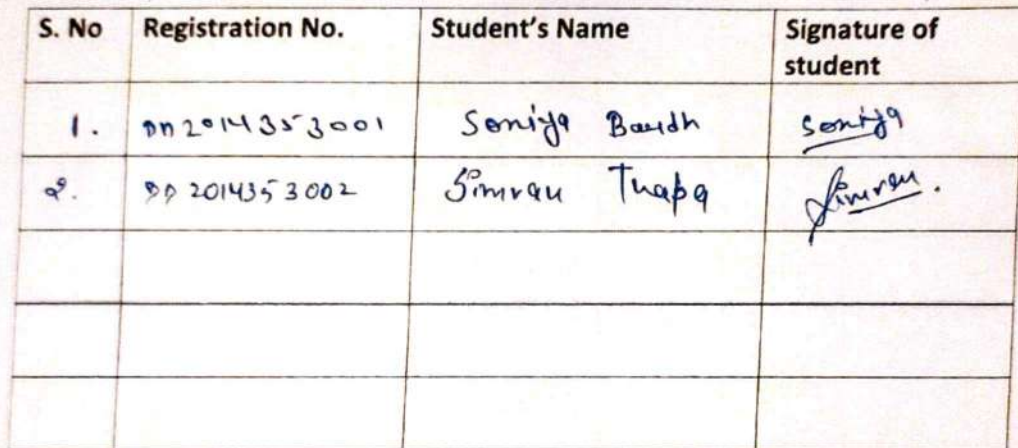 S. No Registration No. Student's Name Signature of student
1. DD2014353001 Soniya Baudh Soniya
2. DD2014353002 Simran Thapa Simran.